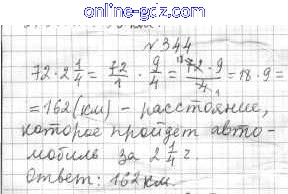 online-gdz.com
№344
72·2 1/4 = 72/1 · 9/4 = 18 72·9/4 1 = 18·9 =
= 162 (км) – расстояние,
которое пройдет авто-
мобиль за 2 1/4 ч.
ответ: 162 км.